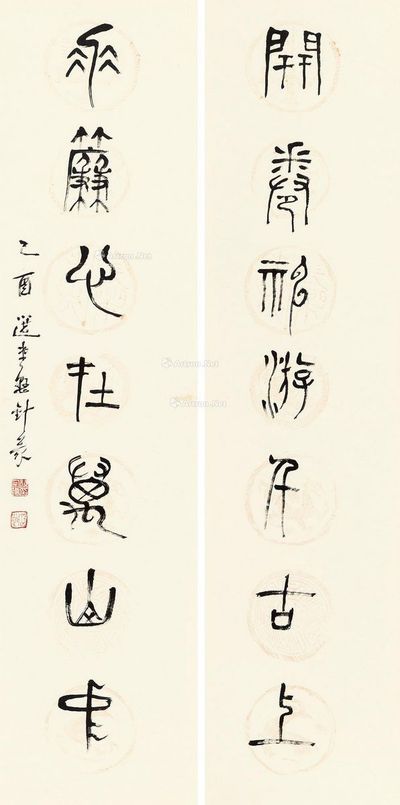 開卷神游千古上
垂簾心在萬山中
乙酉選堂針篆
Artron.Net
Artron.Net
Artron.Net